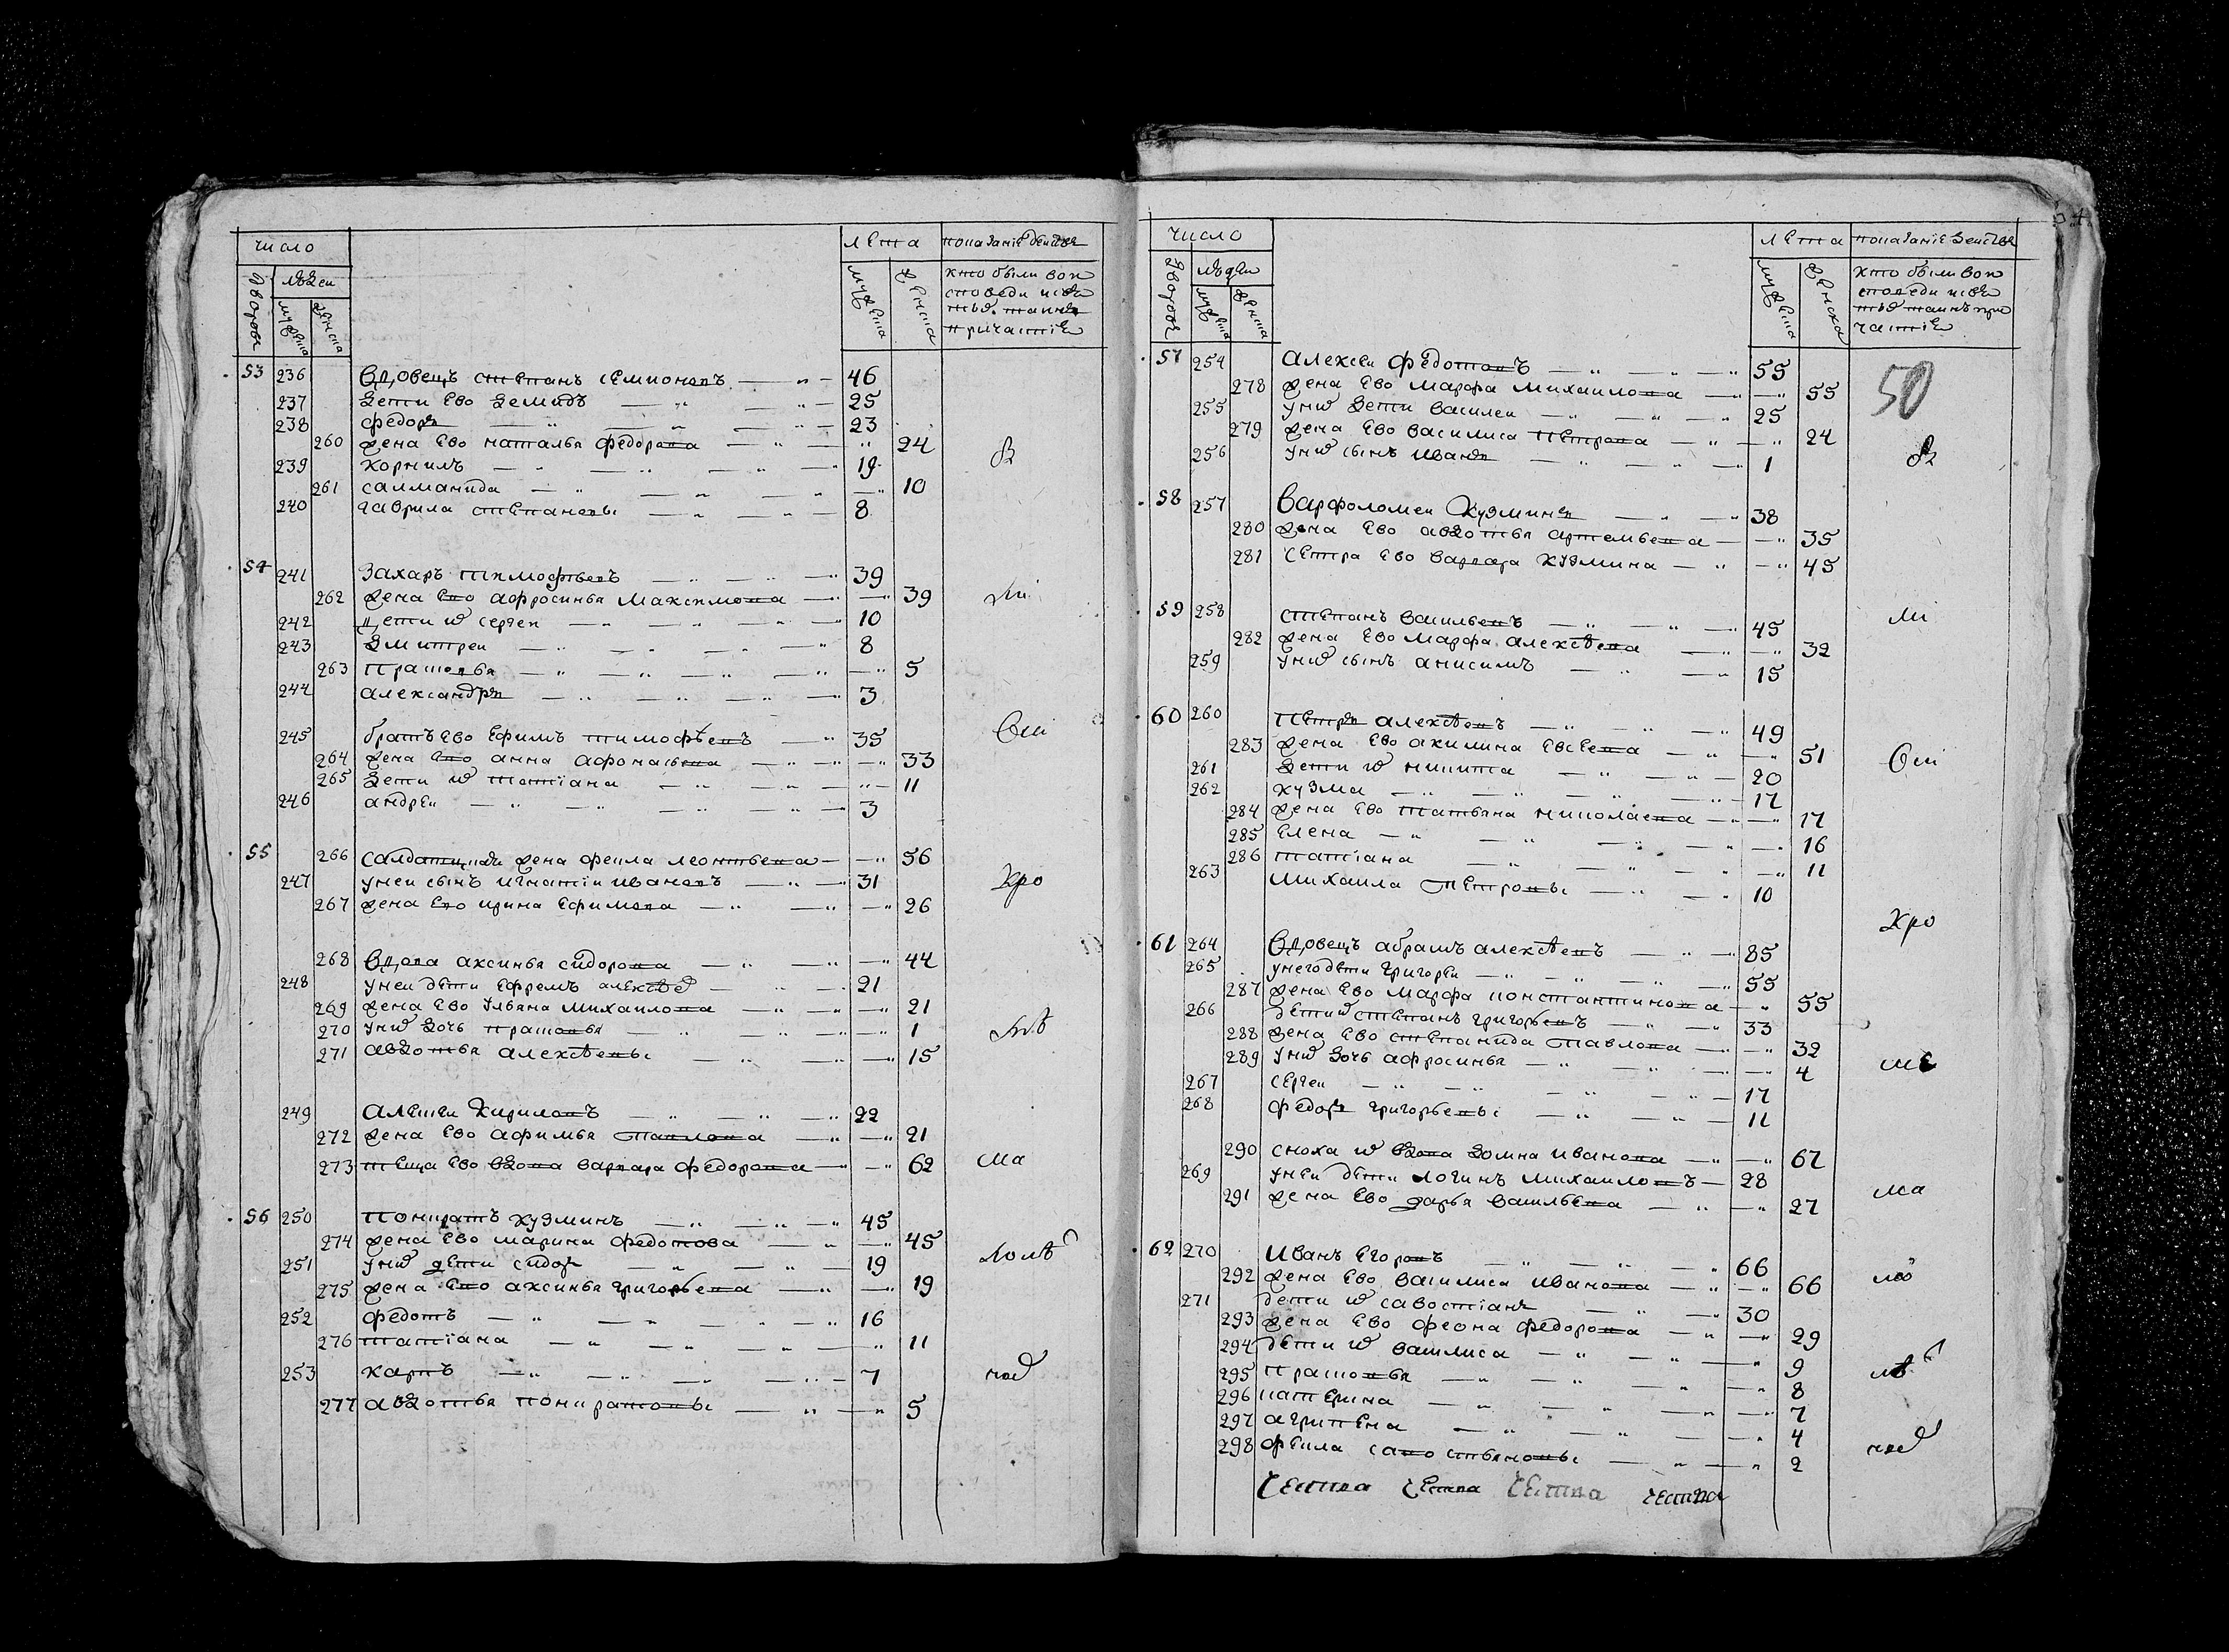 число лета показание действа
дворовъ людеи мужеска женска мужеска женска кто были во исповеди
53 236 Вдовецъ степанъ семионовъ 46
237 дети ево демидъ 25
238 федоръ 23
260 жена ево наталья федорова 24
239 корнилъ 19
261 саламанида 10
240 гаврила степановы 8
54 241 Захаръ тимофѣевъ 39
262 жена ево афросинья максимова 39
242 дети ѿ сергеи 10
243 дмитреи 8
263 прасковья 5
244 александръ 3
245 братъ ево ефимъ тимофѣевъ 35
264 жена ево анна афонасьева 33
265 дети ѿ татиана 11
246 андреи 3
55 266 салдатцкая жена фекла леонтьева 56
247 унеи сынъ игнатіи ивановъ 31
267 жена ево ирина ефимова 26
268 Вдова аксинья сидорова 44
248 унеи дети ефремъ алексѣевъ 21
269 жена ево ульяна михаилова 21
270 унихъ дочь прасковья 1
271 авдотья алексѣевы 15
249 алексеи кириловъ 22
272 жена ево афимья павлова 21
273 теща ево вдова варвара федорова 62
56 250 понкратъ кузминъ 45
274 жена ево марина федотова 45
251 унихъ дети сидоръ 19
275 жена ево аксинья григорьева 19
252 федотъ 16
276 татіана 11
253 карпъ 7
277 авдотья понкратовы 5
число лета показание действа
дворовъ людеи мужеска женска мужеска женска кто были во исповеди
57 254 алексеи федотовъ 55
278 жена ево марфа михаилова 55
50
255 унихъ дети василеи 25
279 жена ево василиса петрова 24
256 унихъ сынъ иванъ 1
58 257 варфоломеи кузминъ 38
280 жена ево авдотья артемьева 35
281 сестра ево варвара кузмина 45
59 258 степанъ васильевъ 45
282 жена ево марфа алексѣева 32
259 унихъ сынъ анисимъ 15
60 260 петръ алексѣевъ 49
283 жена ево акилина евсеева 51
261 дети ѿ никита 20
262 кузма 17
284 жена ево татьяна николаева 17
285 елена 16
286 татіана 11
263 михаила петровы 10
61 264 Вдовецъ абрамъ алексѣевъ 85
265 унего дети григореи 55
287 жена ево марфа константинова 55
266 дети ѿ степанъ григорьевъ 33
288 жена ево степанида павлова 32
289 унихъ дочь афросинья 4
267 сергеи 17
268 федоръ григорьевы 11
290 сноха ѿ вдова домна иванова 67
269 унеи дети логинъ михаиловъ 28
291 жена ево дарья васильева 27
62 270 иванъ егоровъ 66
292 жена ево василиса иванова 66
271 дети ѿ савостіанъ 30
293 жена ево феона федорова 29
294 дети ѿ василиса 9
295 прасковья 8
296 катерина 7
297 агрипена 4
298 фекла савостьяновы 2